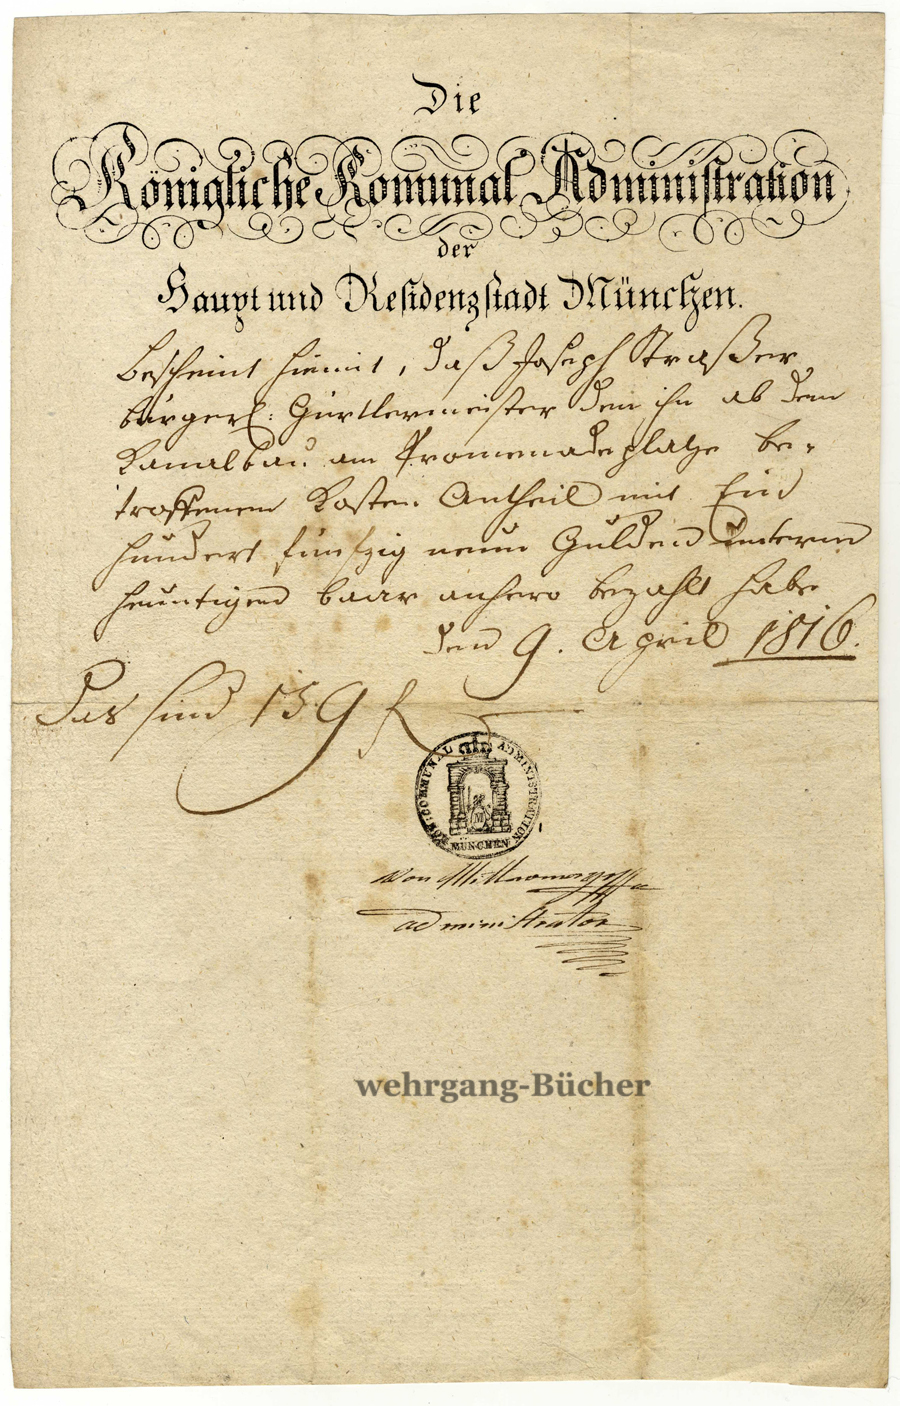 Die
Königliche Komunal Administration
der
Haupt und Residenzstadt München.
Bescheint hiemit, daß Joseph Straßer
bürgerl: Gürtlermeister den ihn ab dem
Kanalbau am Promenadeplatze be-
troffenen Kosten Antheil mit Ein
hundert fünfzig neun Gulden unterm
heuntigen baar anhero bezahlt habe
den 9. April 1816.
Das sind 159 f
KÖN: COMMUNAL ADMINISTRATION
MÜNCHEN
M
Von
administrator
wehrgang-Bücher